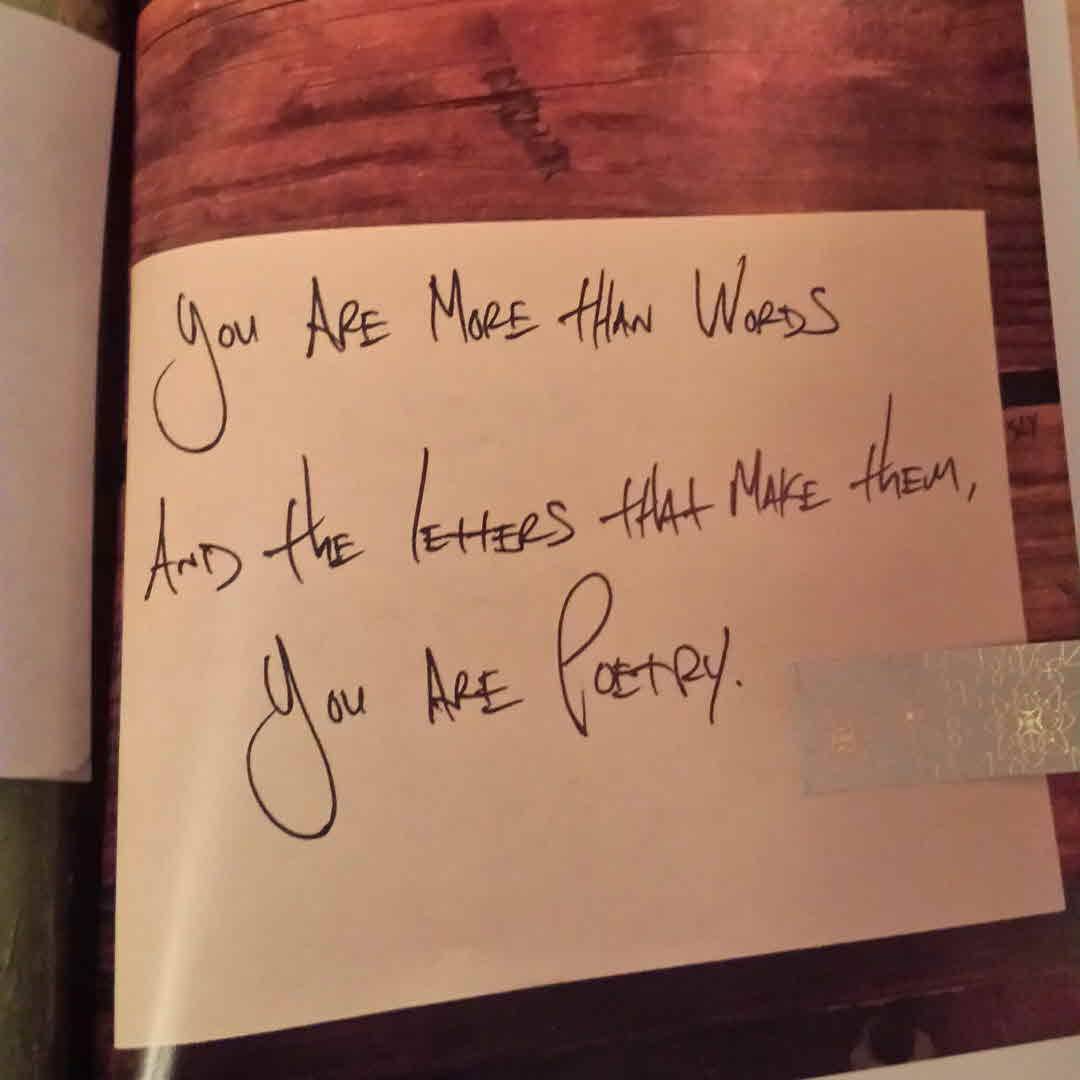 You Are More than Words
And the letters that Make them,
You Are Poetry.